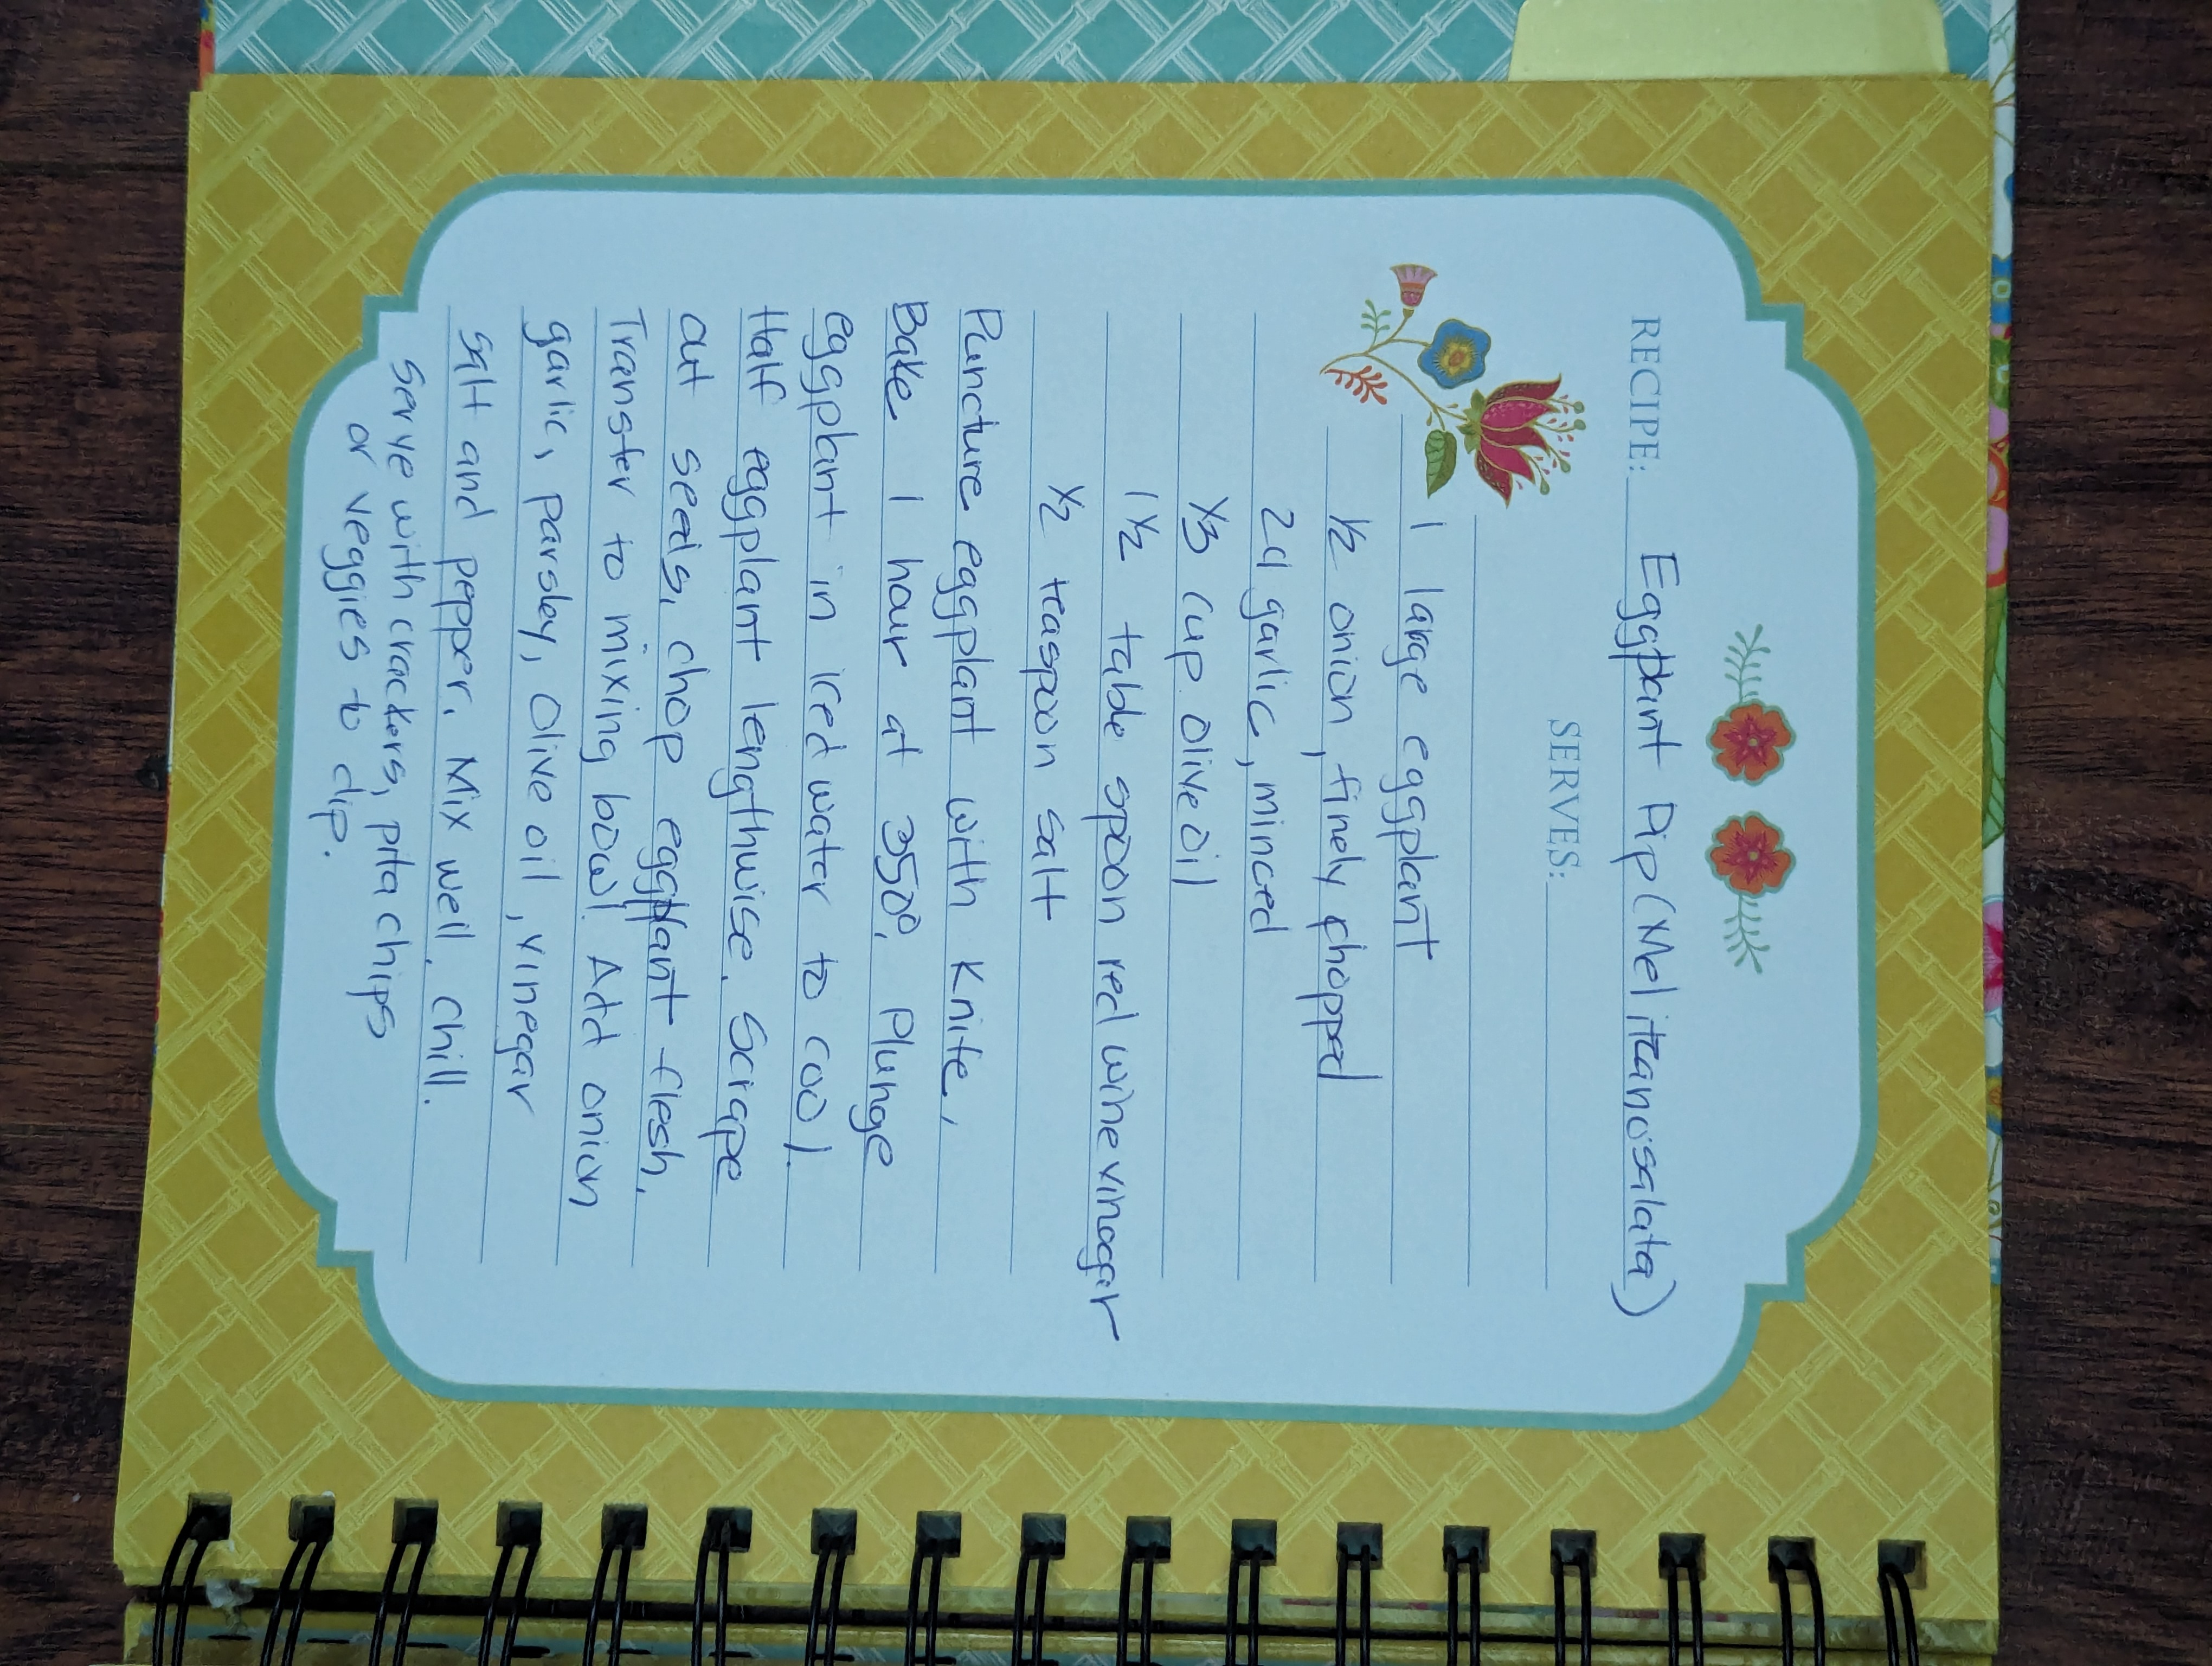 RECIPE: Eggplant Dip (Melitzanosalata)
SERVES:
1 large eggplant
1/2 onion, finely chopped
2 cl garlic, minced
1/3 cup olive oil
1 1/2 table spoon red wine vinegar
1/2 teaspoon salt
Puncture eggplant with Knife,
Bake 1 hour at 350°. Plunge
eggplant in iced water to cool.
Half eggplant lengthwise. Scrape
out seeds, chop eggplant flesh.
Transfer to mixing bowl. Add onion
garlic, parsley, Olive oil, vinegar
salt and pepper. Mix well. Chill.
Serve with crackers, pita chips
or veggies to dip.